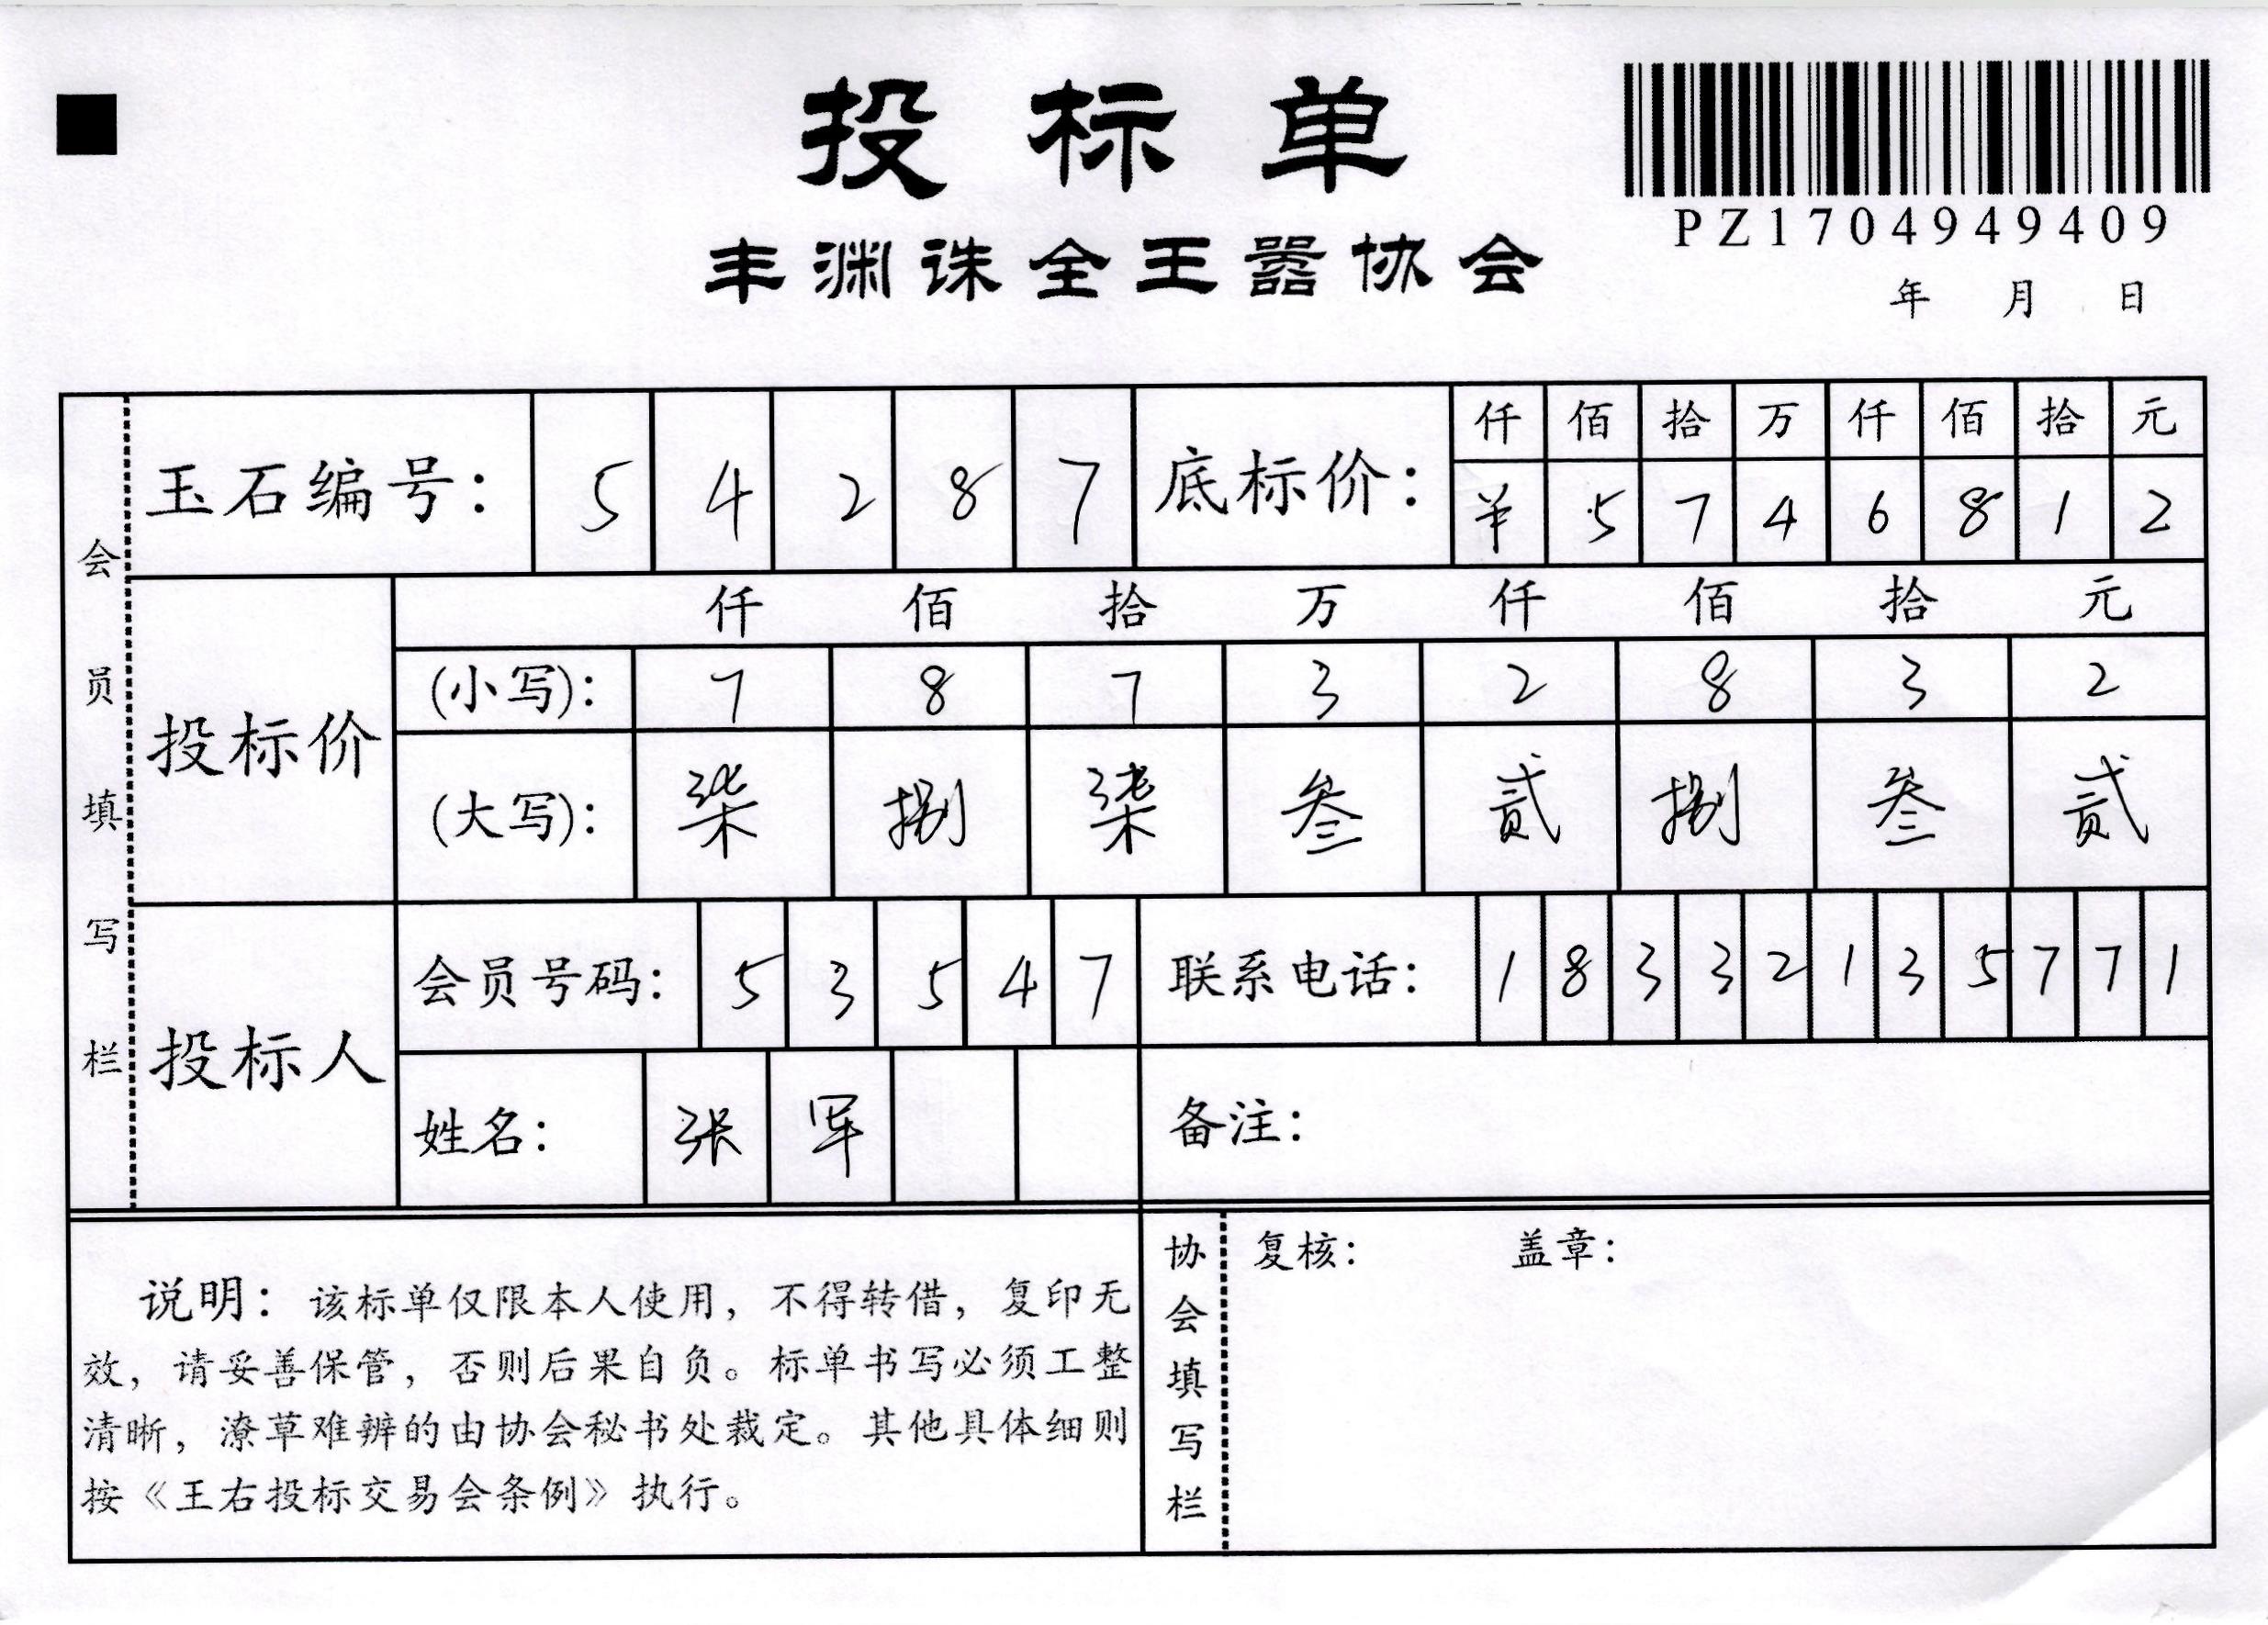 投标单
PZ1704949409
丰渊诛全王嚣协会
年 月 日
会员填写栏
玉石编号: 5 4 2 8 7
底标价: 仟 佰 拾 万 仟 佰 拾 元
¥ 5 7 4 6 8 1 2
投标价
仟 佰 拾 万 仟 佰 拾 元
(小写): 7 8 7 3 2 8 3 2
(大写): 柒 捌 柒 叁 贰 捌 叁 贰
投标人
会员号码: 5 3 5 4 7
联系电话: 1 8 3 3 2 1 3 5 7 7 1
姓名: 张 军
备注:
说明: 该标单仅限本人使用, 不得转借, 复印无
效, 请妥善保管, 否则后果自负。标单书写必须工整
清晰, 潦草难辨的由协会秘书处裁定。其他具体细则
按《王右投标交易会条例》执行。
协会填写栏
复核: 盖章: